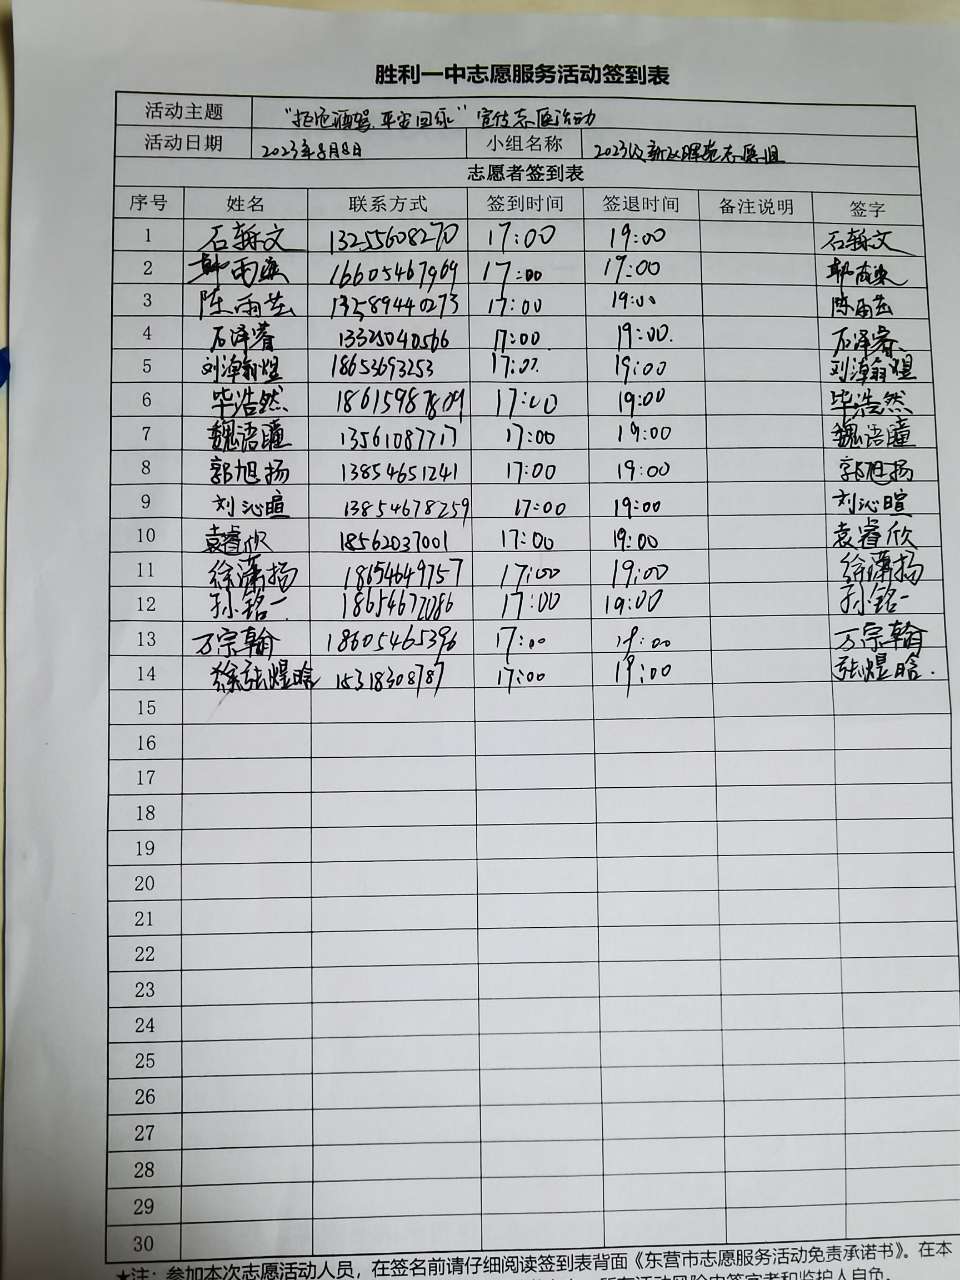 胜利一中志愿服务活动签到表
活动主题 "拒绝酒驾,平安回家"宣传志愿活动
活动日期 2023年8月8日 小组名称 2023级新区晖苑志愿组
志愿者签到表
序号 姓名 联系方式 签到时间 签退时间 备注说明 签字
1 石翰文 13255608270 17:00 19:00 石翰文
2 韩雨染 16605467969 17:00 19:00 韩雨染
3 陈雨芸 13589440273 17:00 19:00 陈雨芸
4 石泽睿 13325040566 17:00 19:00. 石泽睿
5 刘瀚煜 18653693253 17:00. 19:00 刘瀚煜
6 毕浩然 18615987809 17:00 19:00 毕浩然
7 魏语瞳 13561087717 17:00 19:00 魏语瞳
8 郭旭扬 13854651241 17:00 19:00 郭旭扬
9 刘沁暄 13854678259 17:00 19:00 刘沁暄
10 袁睿欣 18562037001 17:00 19:00 袁睿欣
11 徐潇扬 18654649757 17:00 19:00 徐潇扬
12 孙铭一 18654672086 17:00 19:00 孙铭一
13 万宗翰 18605465396 17:00 19:00 万宗翰
14 张煜晗 15318308787 17:00 19:00 张煜晗.
15
16
17
18
19
20
21
22
23
24
25
26
27
28
29
30
★注：参加本次志愿活动人员，在签名前请仔细阅读签到表背面《东营市志愿服务活动免责承诺书》。在本
所有活动风险由签字者和监护人自负。